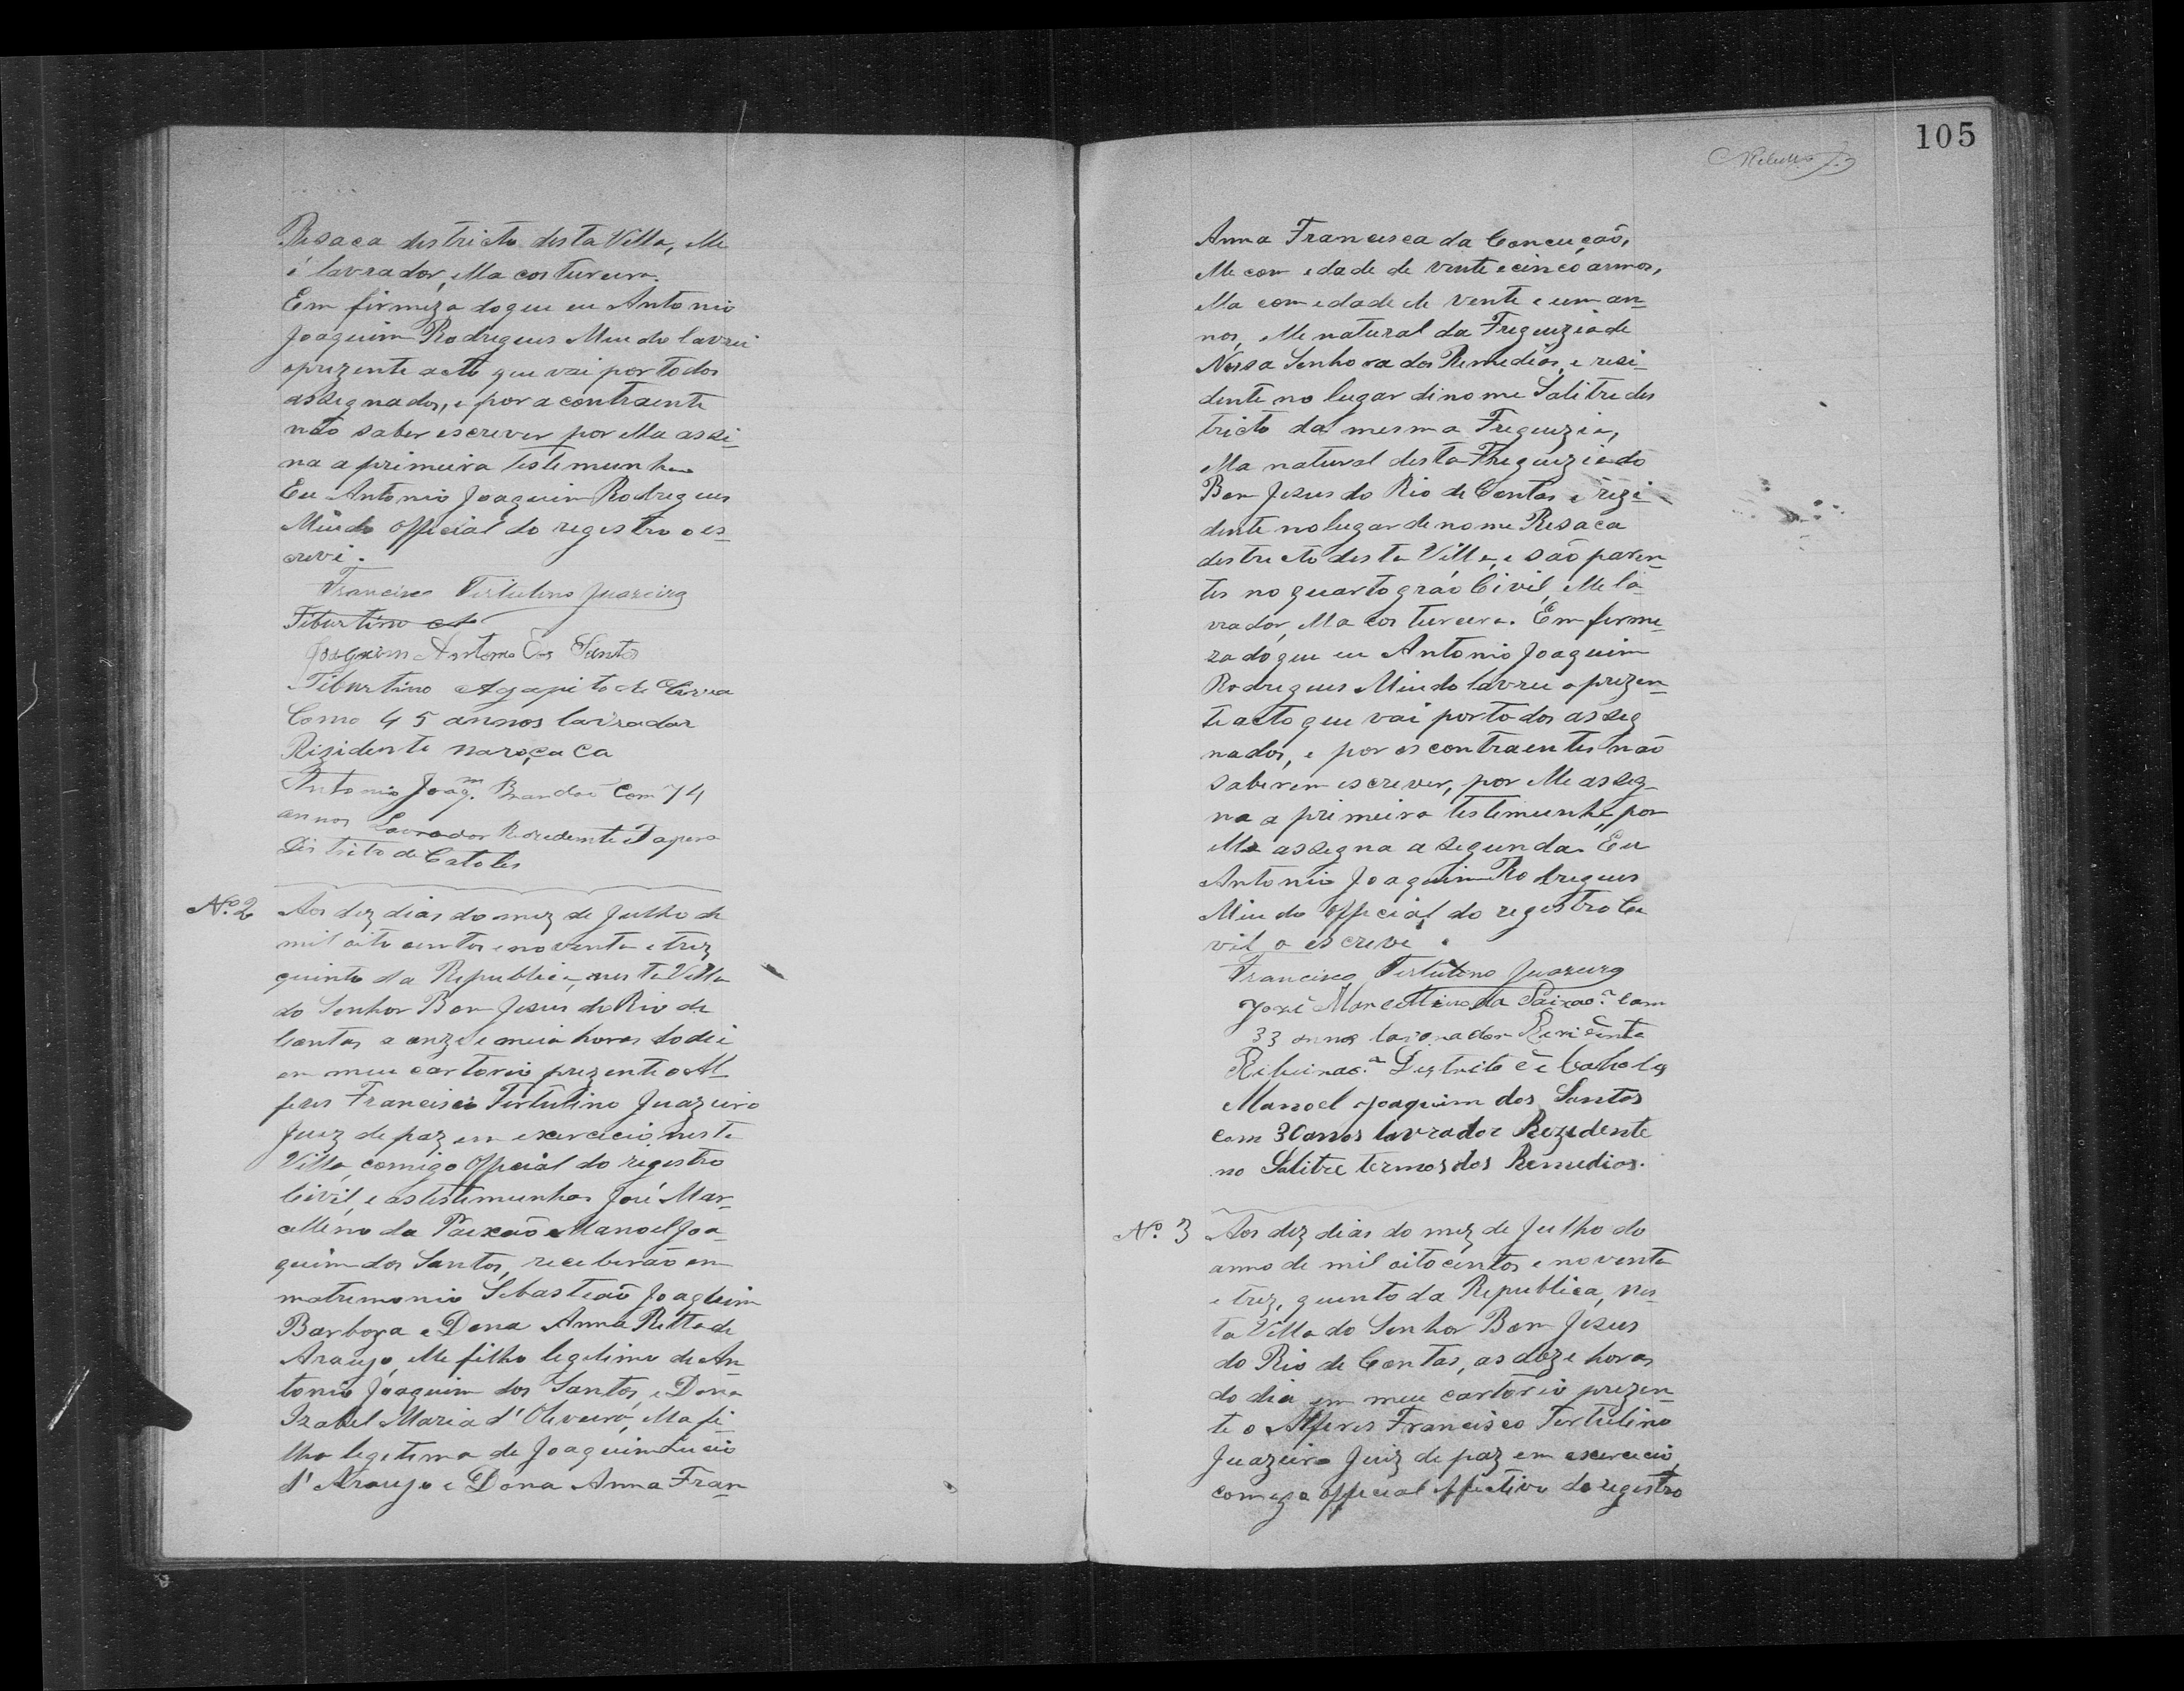 Resaca districto desta Villa, elle
é lavrador, ella costureira.
Em firmeza do que eu Antonio
Joaquim Rodrigues Miudo lavrei
o prezente acto que vai por todos
assegnados, e por a contraente
não saber escrever por ella assi-
na a primeira testemunha
Eu Antonio Joaquim Rodrigues
Miudo official do registro o es-
crevi.
Francisco Tertulino Juazeiro
Tiburtino
Joaquim Antonio dos Santos
Tiburtino Agapito de
Como 45 annos lavrador
Rizidente
Antonio Joaqm. Brandão Com 74
annos Lavrador Rezedente Tapera
Districto de Catoles
No. 2 Aos dez dias do mez de Julho de
mil oito centos e noventa e trez
quinto da Republica, nesta Villa
do Senhor Bom Jesus do Rio de
Contas a onze e meia horas do dia
em meu cartorio prezente o Al-
feres Francisco Tertulino Juazeiro
Juiz de paz em exercicio nesta
Villa, comigo Official do registro
Civil, e as testemunhas José Mar-
cellino da Paixão e Manoel Joa-
quim dos Santos, receberão em
matremonio Sebastião Joaquim
Barboza e Dona Anna Ritta de
Araujo, elle filho legitimo de An-
tonio Joaquim dos Santos, e Dona
Izabel Maria d'Oliveira, ella fi-
lha legetima de Joaquim Lucio
d'Araujo e Dona Anna Fran-
105
Anna Francisca da Conceição,
elle com edade de vinte e cinco annos,
ella com edade de vente e um an-
nos, elle natural da Freguezia de
Nossa Senhora dos Remedios, e rezi-
dente no lugar di nome Salitre des
tricto da mesma Freguezia,
ella natural desta Freguezia do
Bom Jesus do Rio de Contas e rezi-
dente no lugar de nome Resaca
destricto desta Villa, e são paren-
tes no quarto gráo Civil, elle la-
vrador, ella costureira. Em firme-
za do que eu Antonio Joaquim
Rodrigues Miudo lavrei o prezen-
te acto que vai por todos asseg
nados, e por os contraentes não
saberem escrever, por elle asseg-
na a primeira testemunha, por
ella assegna a segunda. Eu
Antonio Joaquim Rodrigues
Miudo official do registro Ce
vil o escrevi.
Francisco Tertulino Juazeiro
José Marcellino da Paixão. Com
33 annos lavrador Rexidente
Ribeirão. Destrito de Catholes
Manoel Joaquim dos Santos
Com 30 anos lavrador Rezidente
no Salitre termos dos Remedios.
No. 3 Aos dez dias do mez de Julho do
anno de mil oitocentos e noventa
e trez, quinto da Republica, nes-
ta Villa do Senhor Bom Jesus
do Rio de Contas, as doze horas
do dia em meu cartorio prezen-
te o Alferes Francisco Tertulino
Juazeiro Juiz de paz em exercicio,
comigo official effectivo do registro